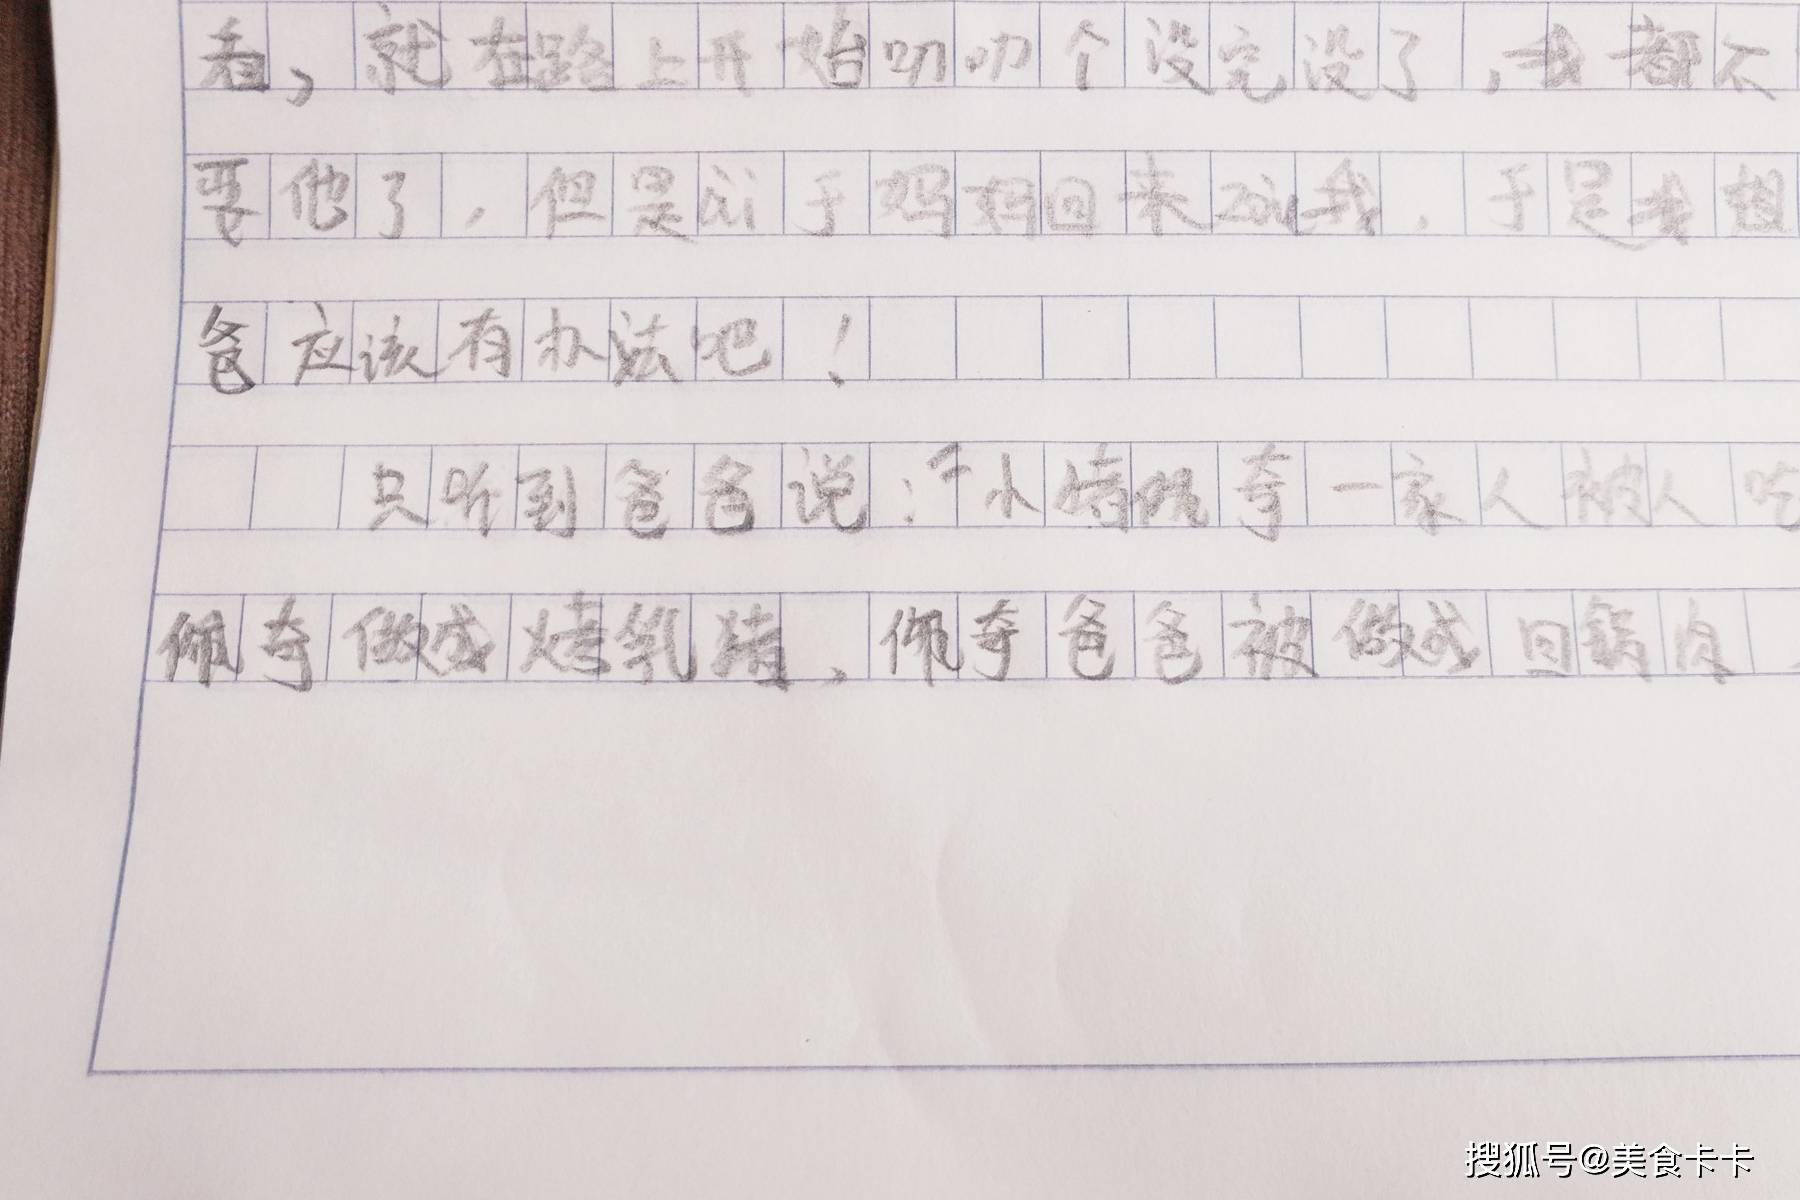 看,就在路上开始叨叨个没完没了,我都不
要他了,但是ài于妈妈回来砍我,于是我想
爸应该有办法吧!
只听到爸爸说:“小猪佩奇一家人被人吃
佩奇做成烤乳猪,佩奇爸爸被做成回锅肉,
搜狐号@美食卡卡